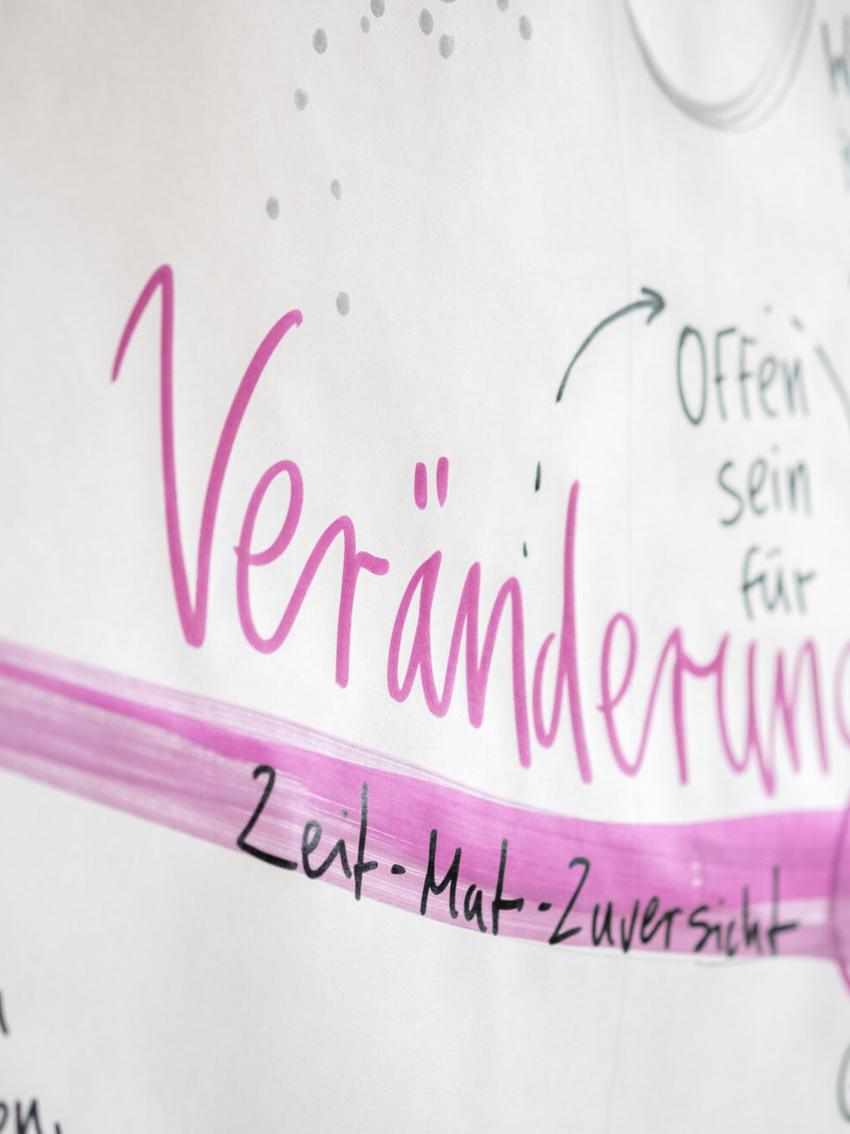 Offen
sein
für
Veränderung
Zeit · Mut · Zuversicht
en,